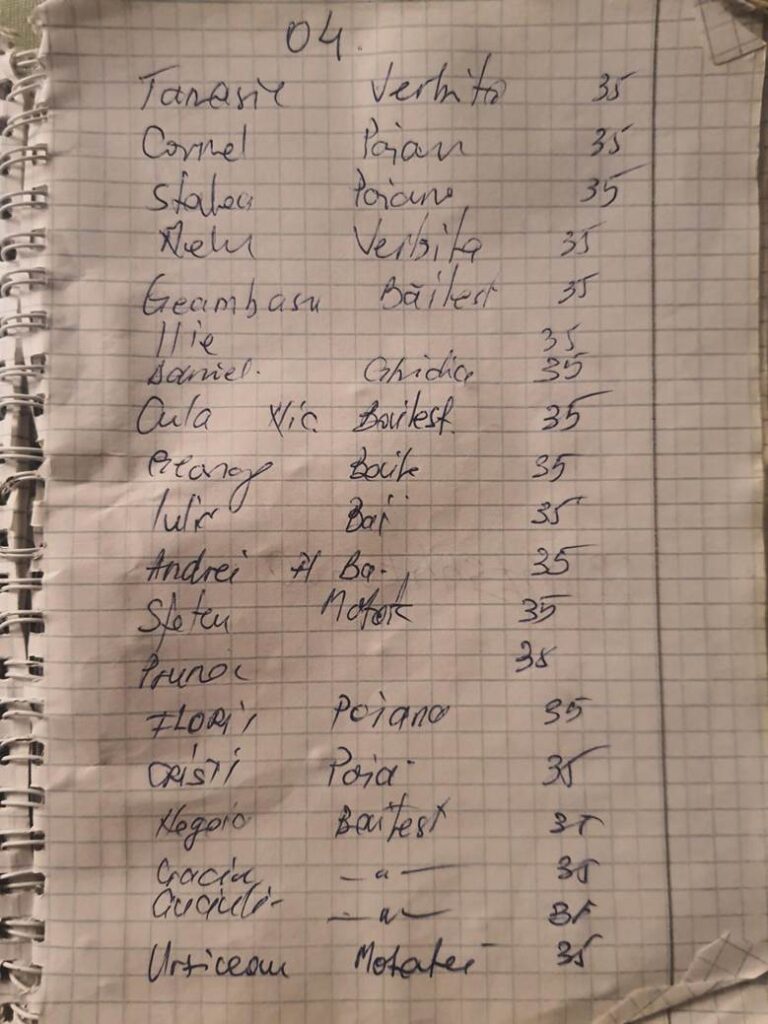 04.
Tanasie Verbita 35
Cornel Poian 35
Stalea Poiana 35
Nelu Verbita 35
Geambasu Băilest 35
Ilie 35
Daniel. Ghidia 35
Oula Vic Bailest. 35
Baile 35
Iulir Bai 35
Andrei H Ba. 35
Sfetcu Motate 35
Prunoi 35
FLORI Poiana 35
CRISTI Poia- 35
Negoio Bailest 35
Cracin - " - 35
- " - 35
Urziceanu Motatei 35